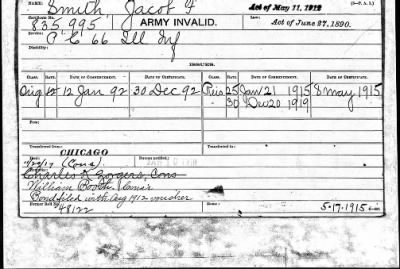 NAME: Smith Jacob F
Act of May 11, 1912
(3-P. A. I.)
Certificate No. 835,995
ARMY INVALID.
Law: Act of June 27, 1890.
Service: P "C" 66 Ill Inf
Disability:
ISSUES.
CLASS. RATE. DATE OF COMMENCEMENT. DATE OF CERTIFICATE. CLASS. RATE. DATE OF COMMENCEMENT. DATE OF CERTIFICATE.
Orig 12 12 Jan 92 30 Dec 92 Reis 25 Jan 21 1915 8 May 1915
30 Dec 20 1919
From: Date:
Transferred from:
Transferred to:
CHICAGO
(Cons)
Charles A Rogers, Cons
William Booth, Consr
Bond filed with Aug 1912 voucher
Home Roll No. 48122
Home:
5-17-1915